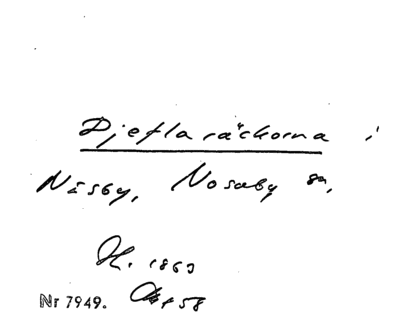 Djeflaräckorna i
Näsby, Nosaby sn,
H. 1863
Nr 7949. s 58